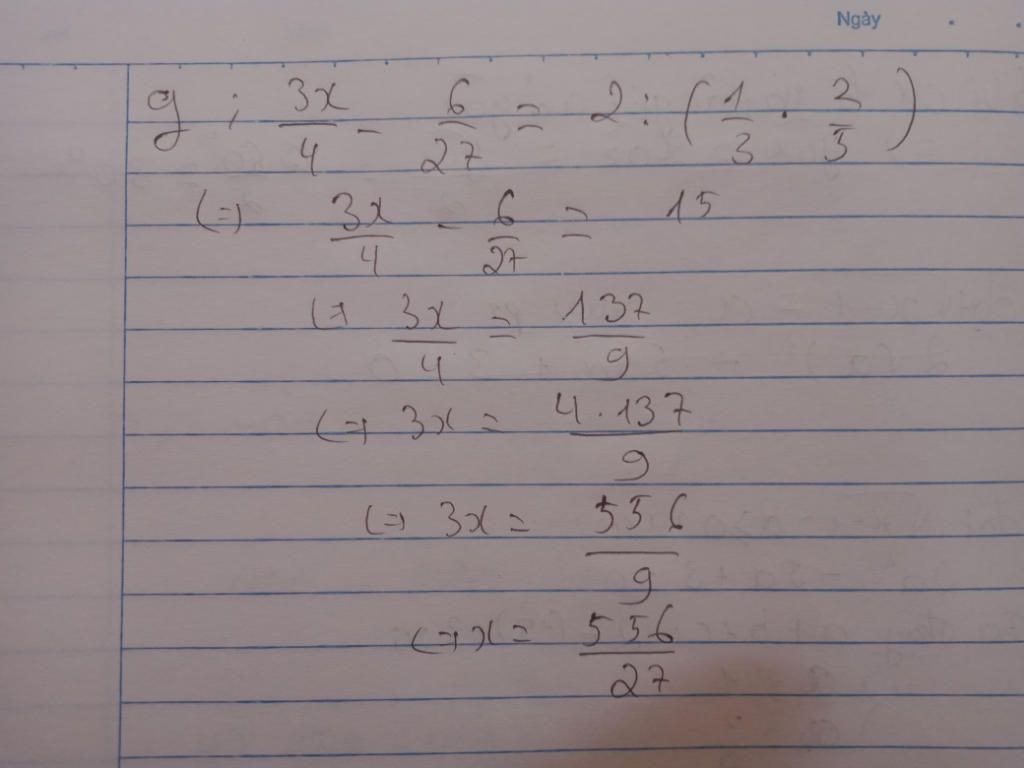 Ngày
g ; 3x/4 - 6/27 = 2 : (1/3 . 2/5)
(=) 3x/4 - 6/27 = 15
(=) 3x/4 = 137/9
(=) 3x = 4.137/9
(=) 3x = 556/9
(=) x = 556/27